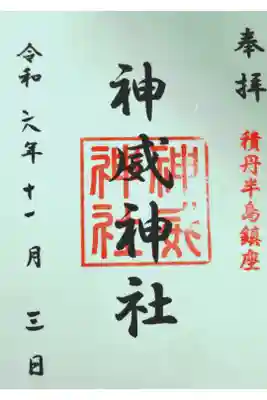 奉拝
積丹半島鎮座
神威神社
神威神社
令和六年十一月三日